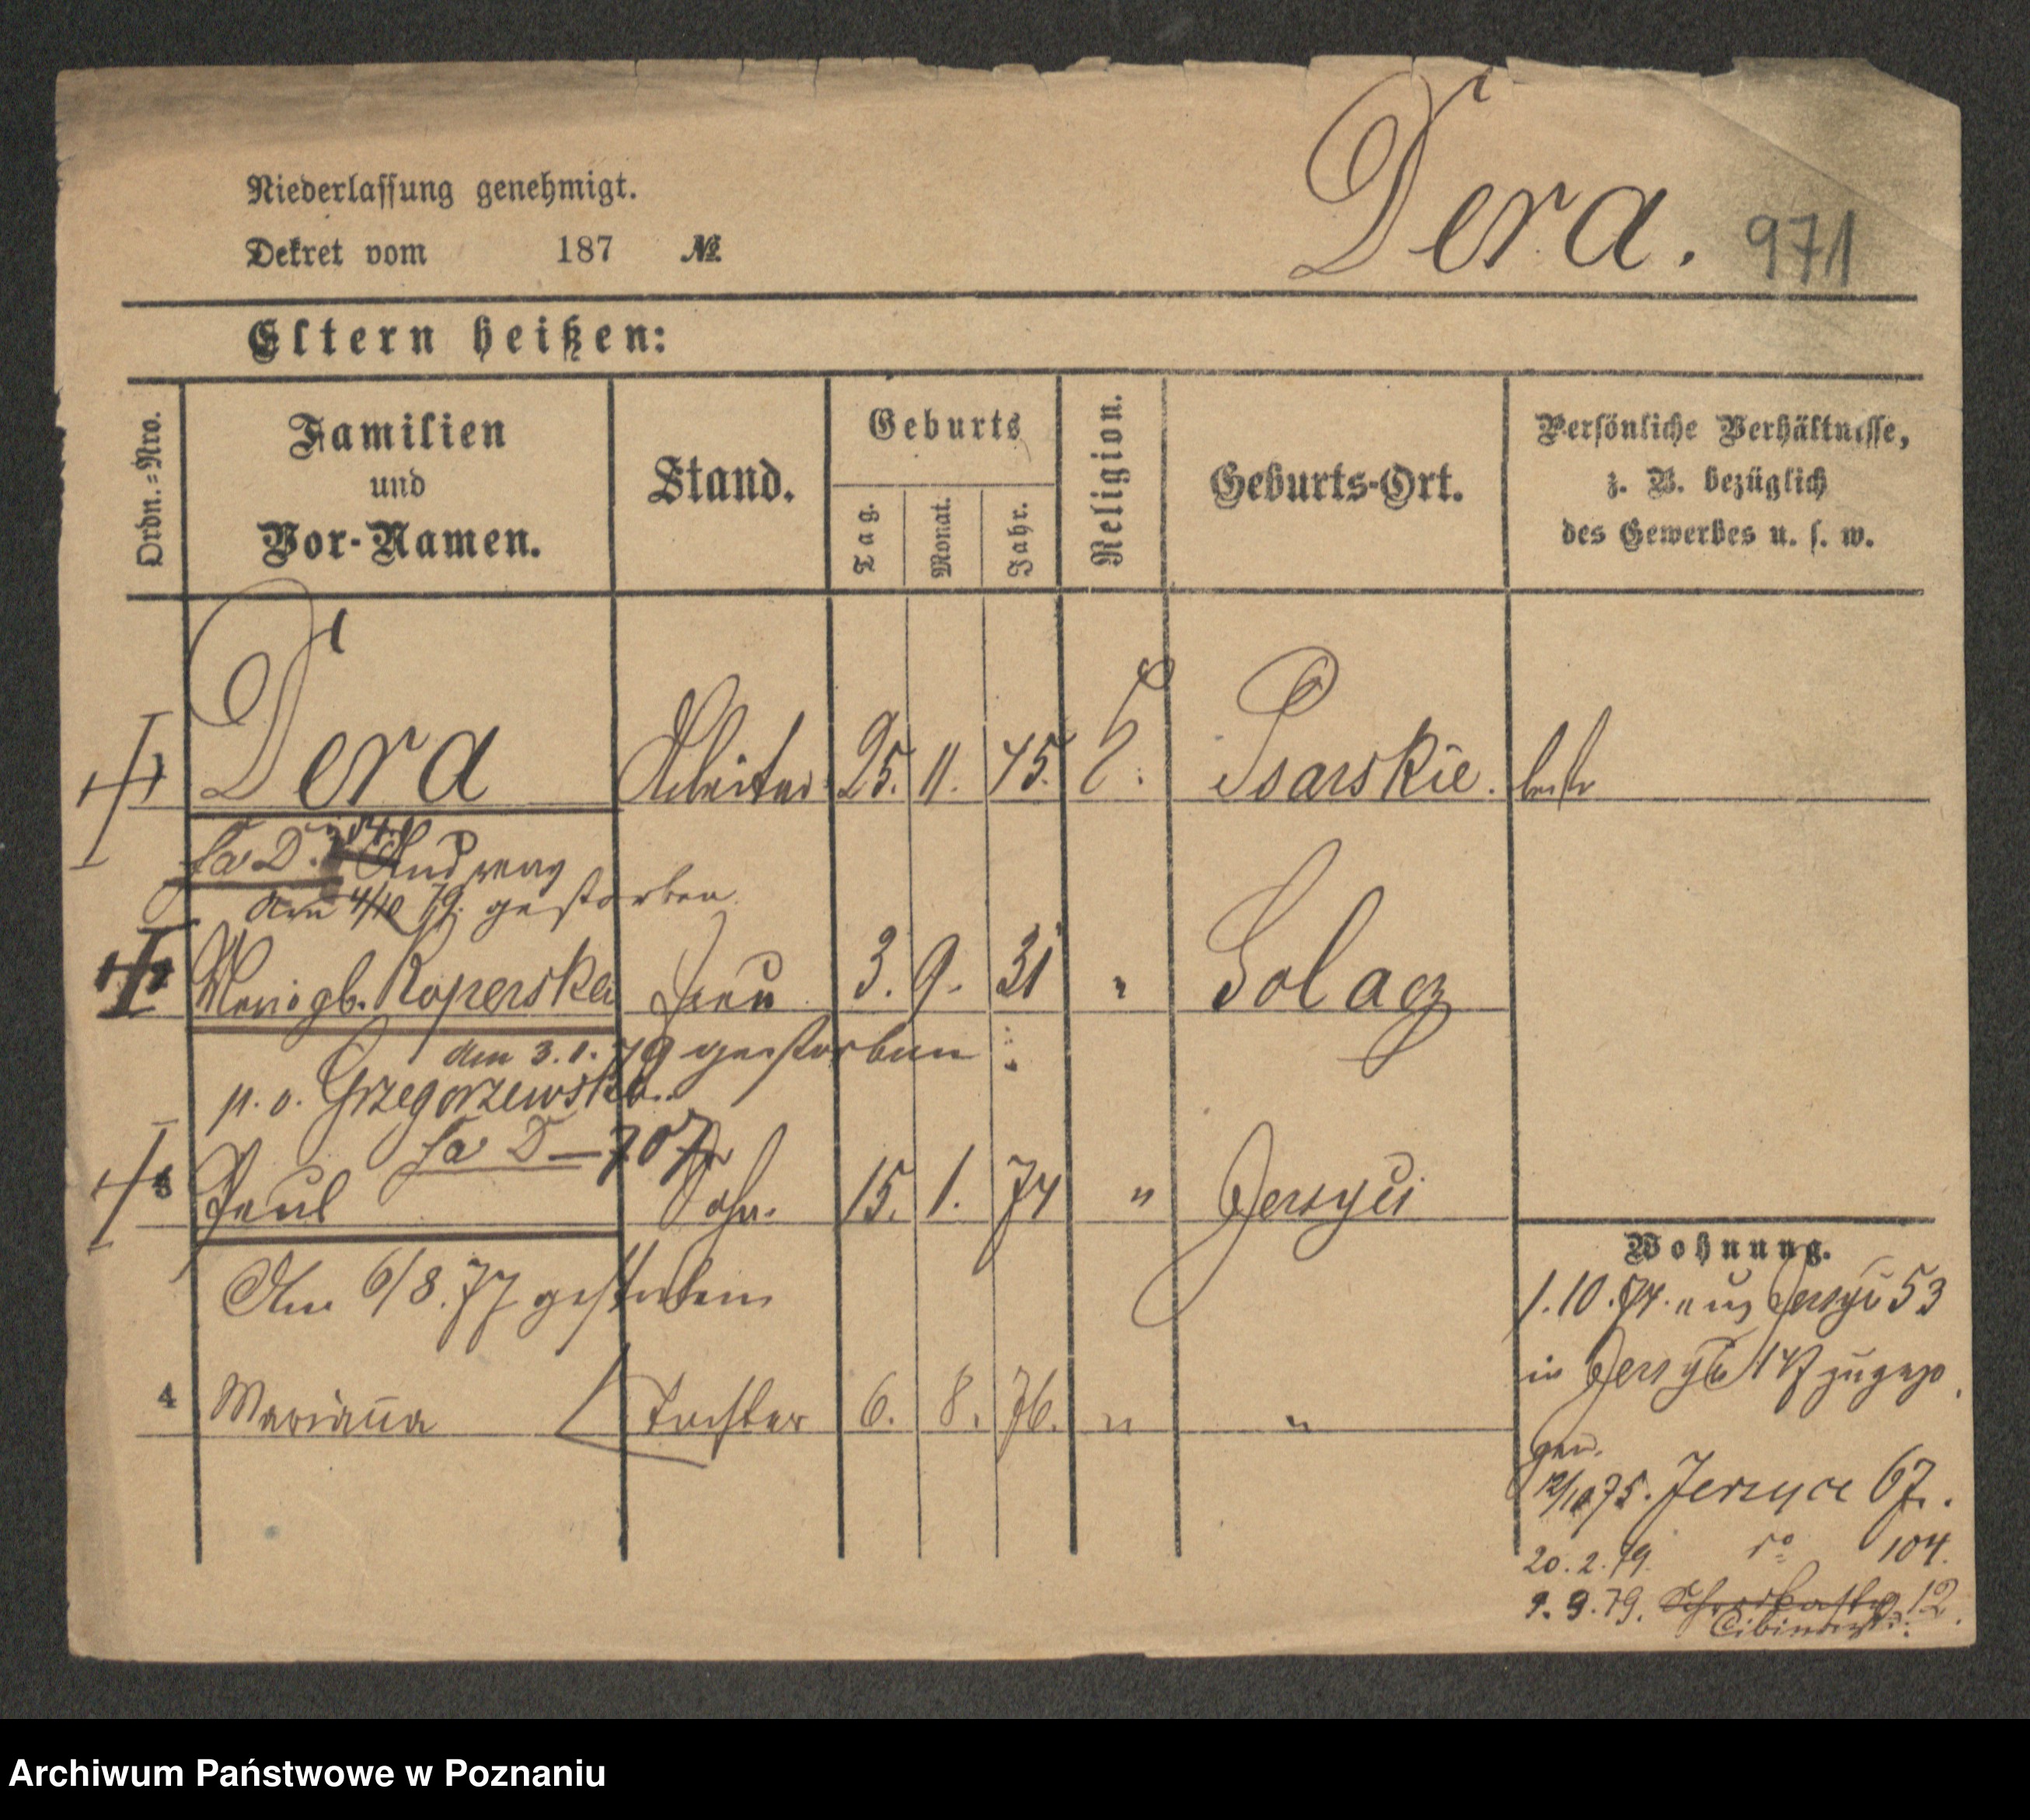 Dera. 971
Niederlassung genehmigt.
Dekret vom 187 №
Eltern heißen:
Ordn.=Nro.
Familien
und
Vor-Namen.
Stand.
Geburts
Tag.
Monat.
Jahr.
Religion.
Geburts-Ort.
Persönliche Verhältnisse,
z. B. bezüglich
des Gewerbes u. s. w.
1 Dera Arbeiter 25. 11. 45. Psarskie.
fa D.
den 4/10 79. gestorben.
2 Maria gb. Koperska Frau 3. 9. 31 " Solacz
den 3. 1. 79 gestorben
p. o. Grzegorzewska.
fa D — 707
3 Paul Sohn. 15. 1. 74 " Jersyci
Am 6/8. 77 gestorben
4 Marianna Tochter 6. 8. 76. " "
Wohnung.
1. 10. 74. aus Jersyc 53
in Jersyce zugezo
gen.
12/10 75. Jersyce 67.
20. 2. 79. do 104.
9. 9. 79. 12.